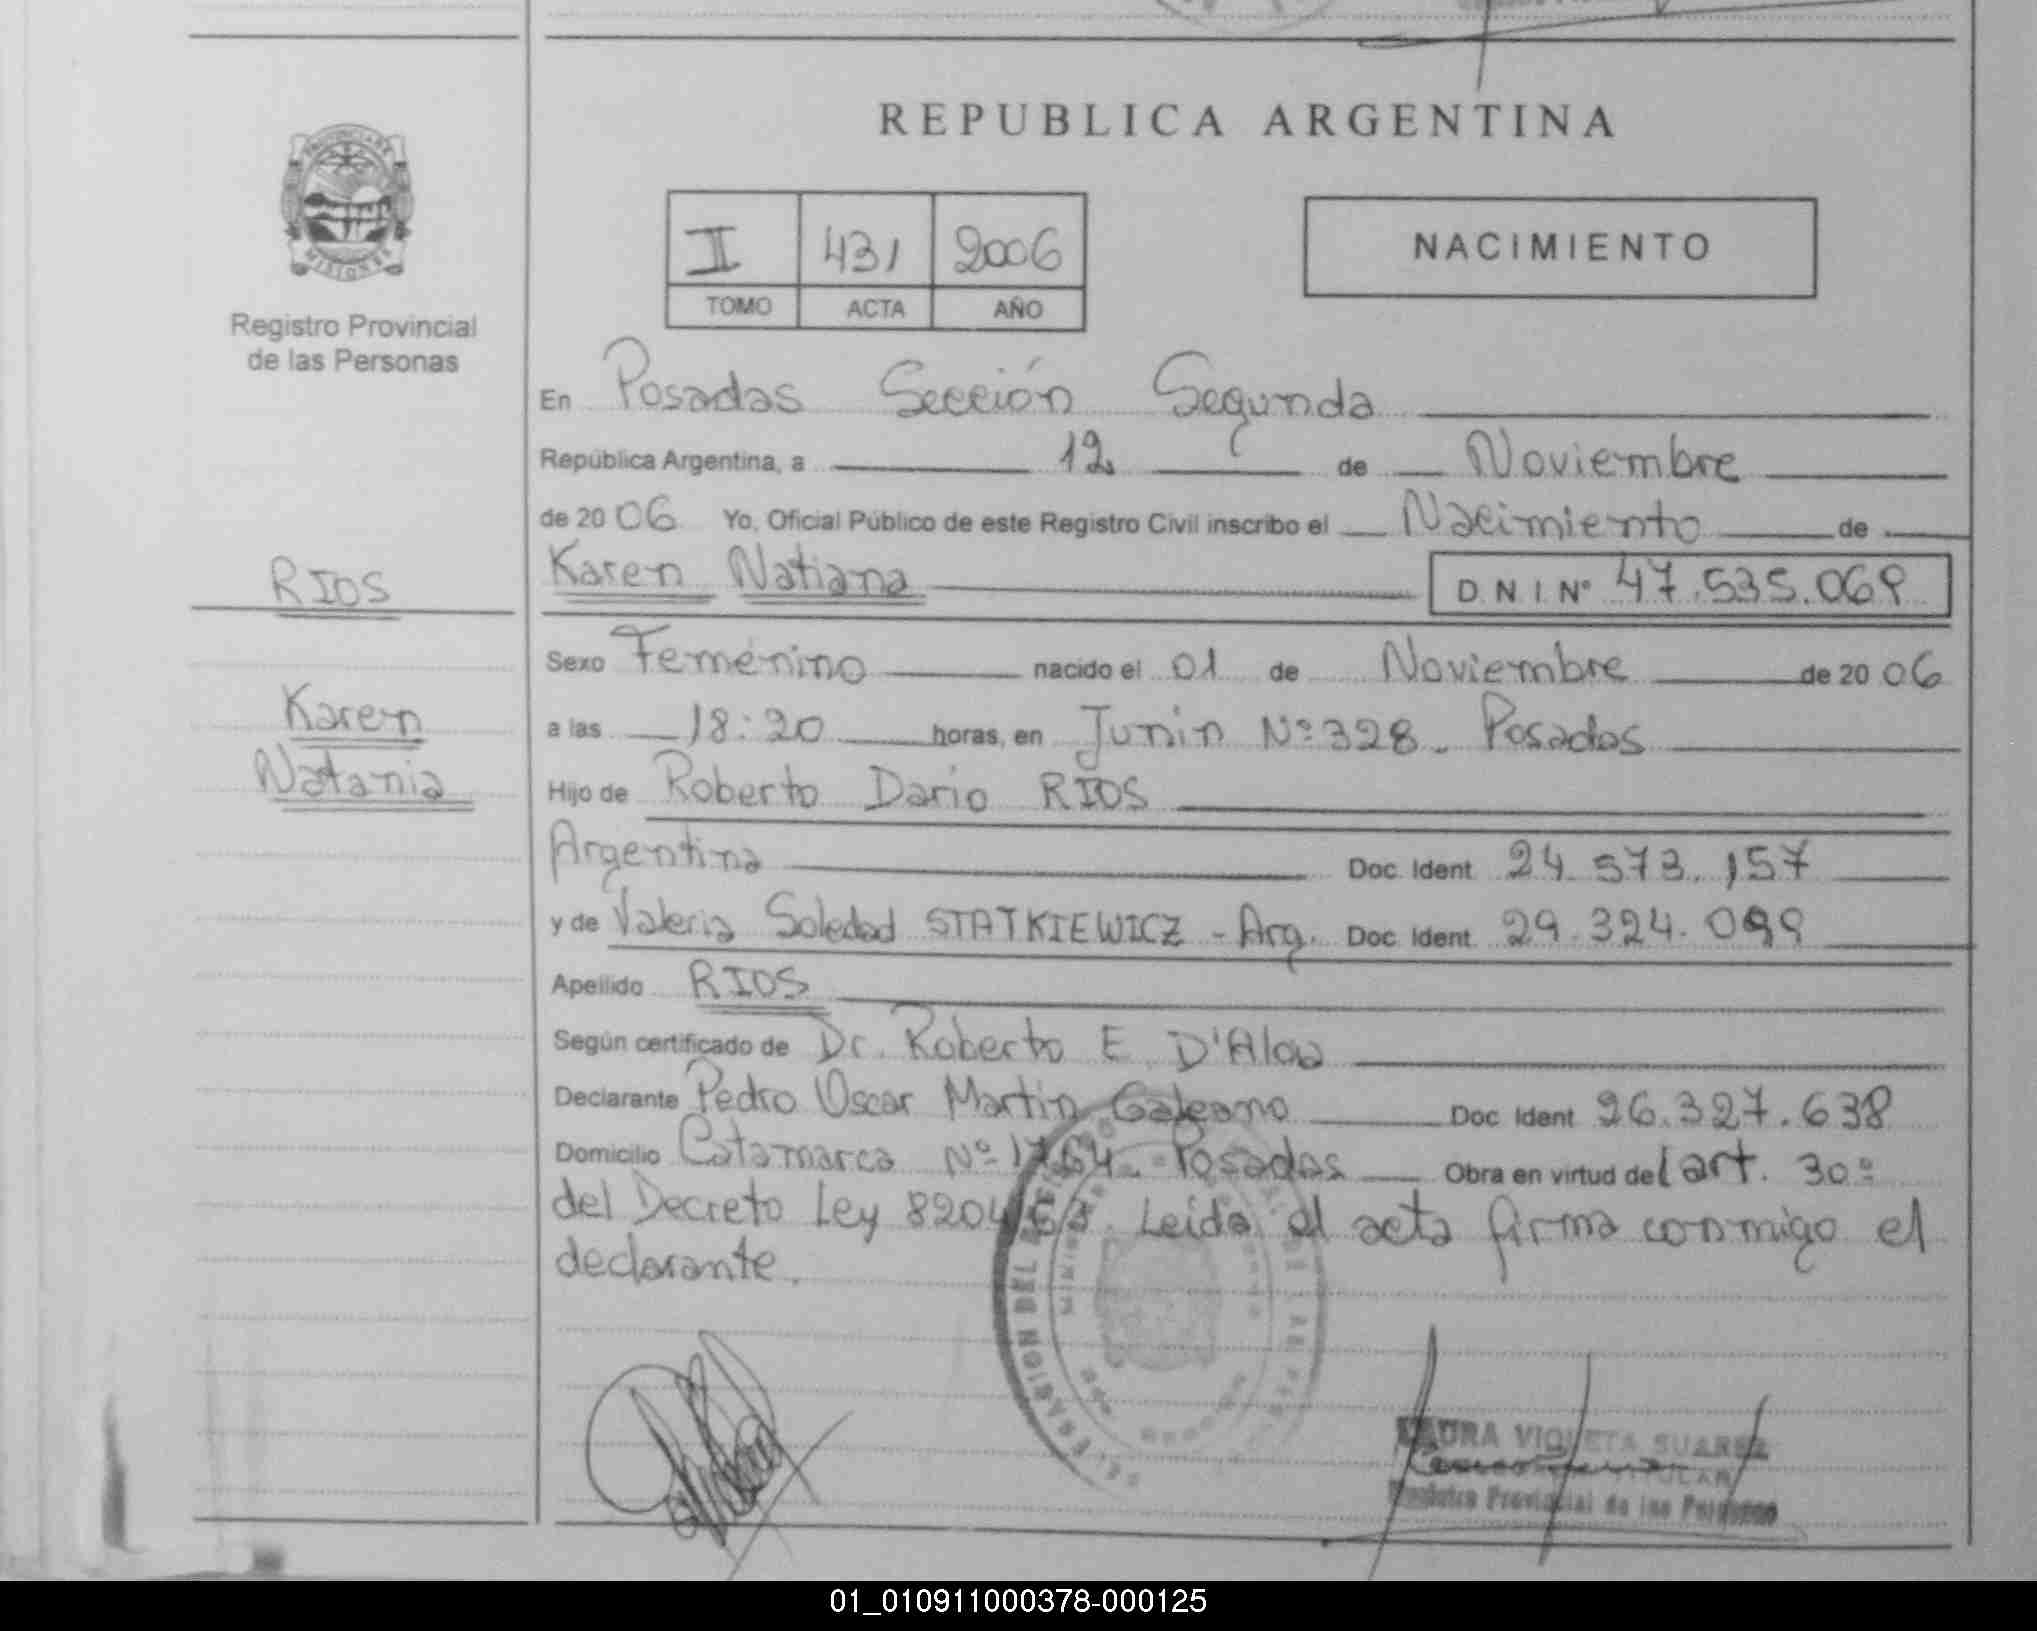 REPUBLICA ARGENTINA
PROVINCIA DE
MISIONES
Registro Provincial
de las Personas
II 431 2006
TOMO ACTA AÑO
NACIMIENTO
En Posadas Sección Segunda
República Argentina, a 12 de Noviembre
de 2006 Yo, Oficial Público de este Registro Civil inscribo el Nacimiento de
RIOS
Karen Natiana D.N.I Nº 47.535.069
Sexo Femenino nacido el 01 de Noviembre de 2006
Karen
Natania
a las 18:20 horas, en Junin Nº 328. Posadas
Hijo de Roberto Dario RIOS
Argentina Doc. Ident. 24.573.157
y de Valeria Soledad STATKIEWICZ - Arg. Doc. Ident. 29.324.099
Apellido RIOS
Según certificado de Dr. Roberto E D'Aloa
Declarante Pedro Oscar Martin Galeano Doc. Ident. 26.327.638
Domicilio Catamarca Nº 1764 - Posadas Obra en virtud del art. 30º
del Decreto Ley 8204/63. Leida el acta firma conmigo el
declarante.
LAURA VIOLETA SUAREZ
TITULAR
Registro Provincial de las Personas
01_010911000378-000125